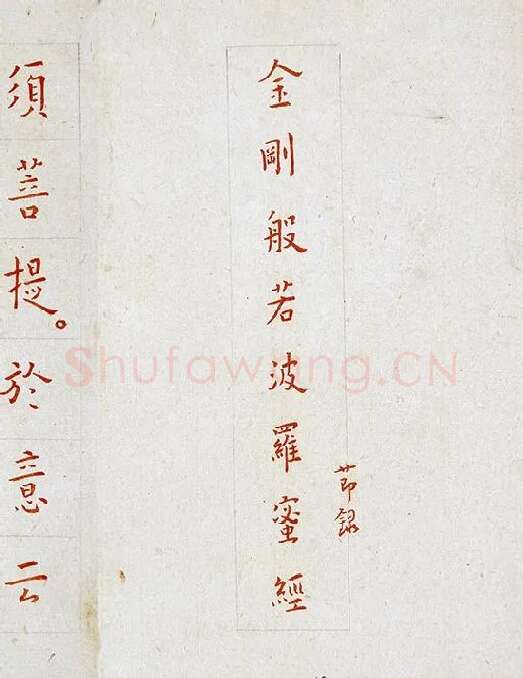 金剛般若波羅蜜經
節錄
須菩提。於意云
Shufawang.CN